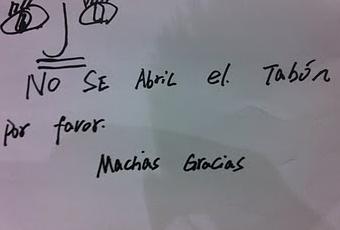 NO SE Abril el. Tabún
por favor.
Machias Gracias